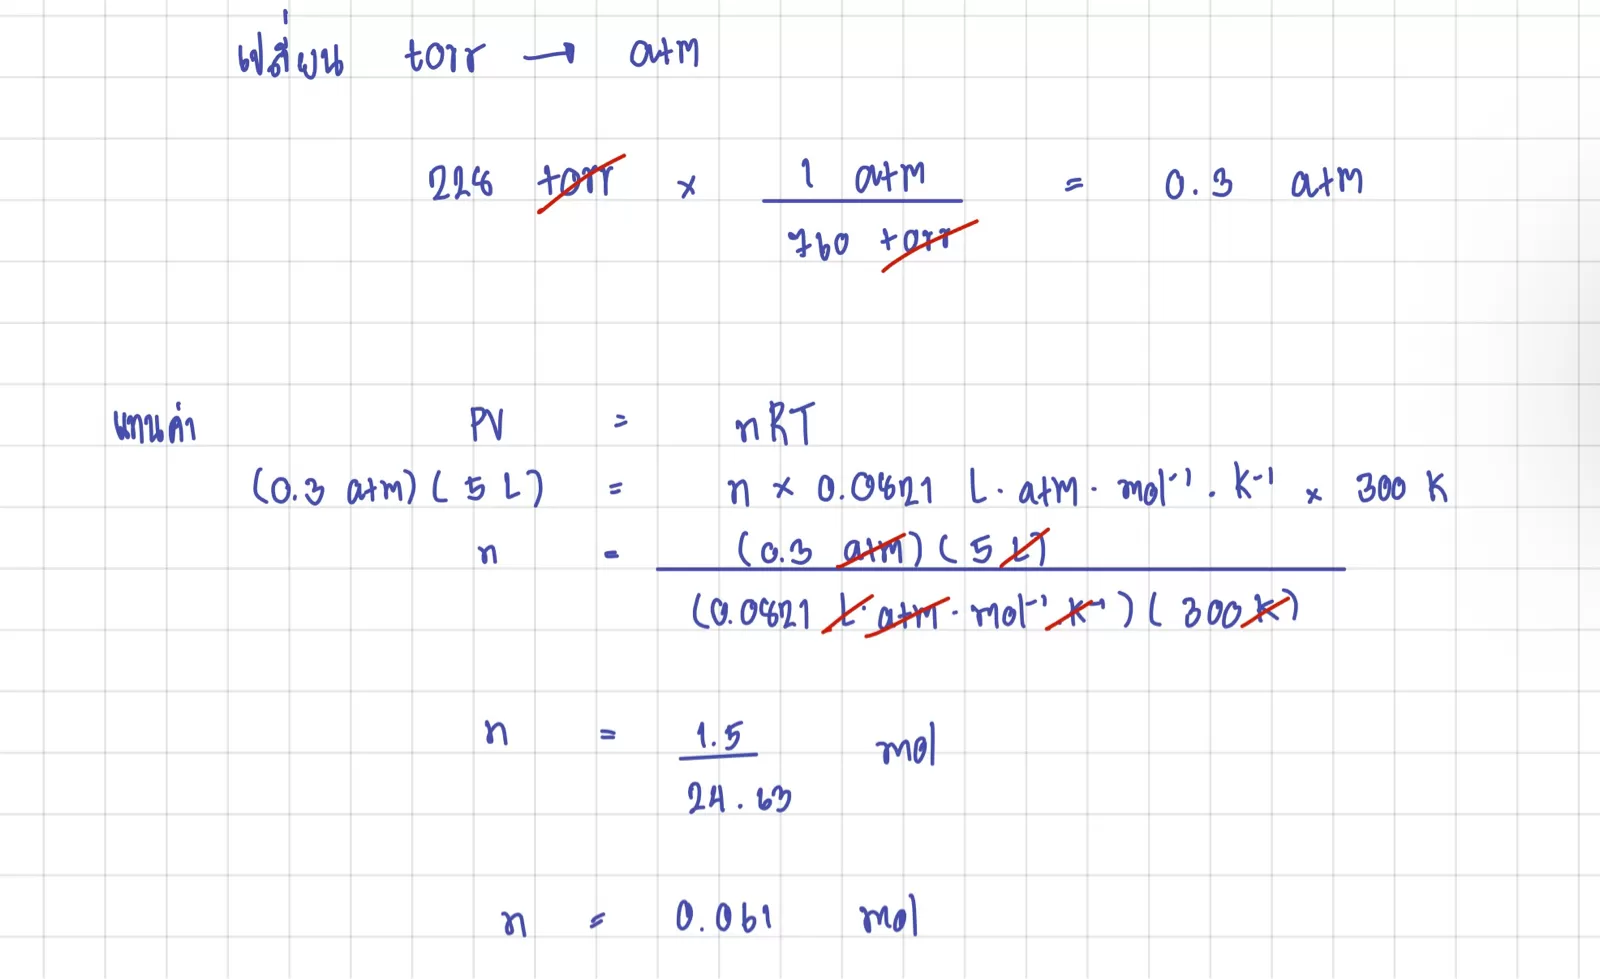 เปลี่ยน torr → atm
228 torr × 1 atm / 760 torr = 0.3 atm
แทนค่า PV = nRT
(0.3 atm)(5 L) = n × 0.0821 L·atm·mol⁻¹·K⁻¹ × 300 K
n = (0.3 atm)(5 L) / (0.0821 L·atm·mol⁻¹·K⁻¹)(300 K)
n = 1.5 / 24.63 mol
n = 0.061 mol